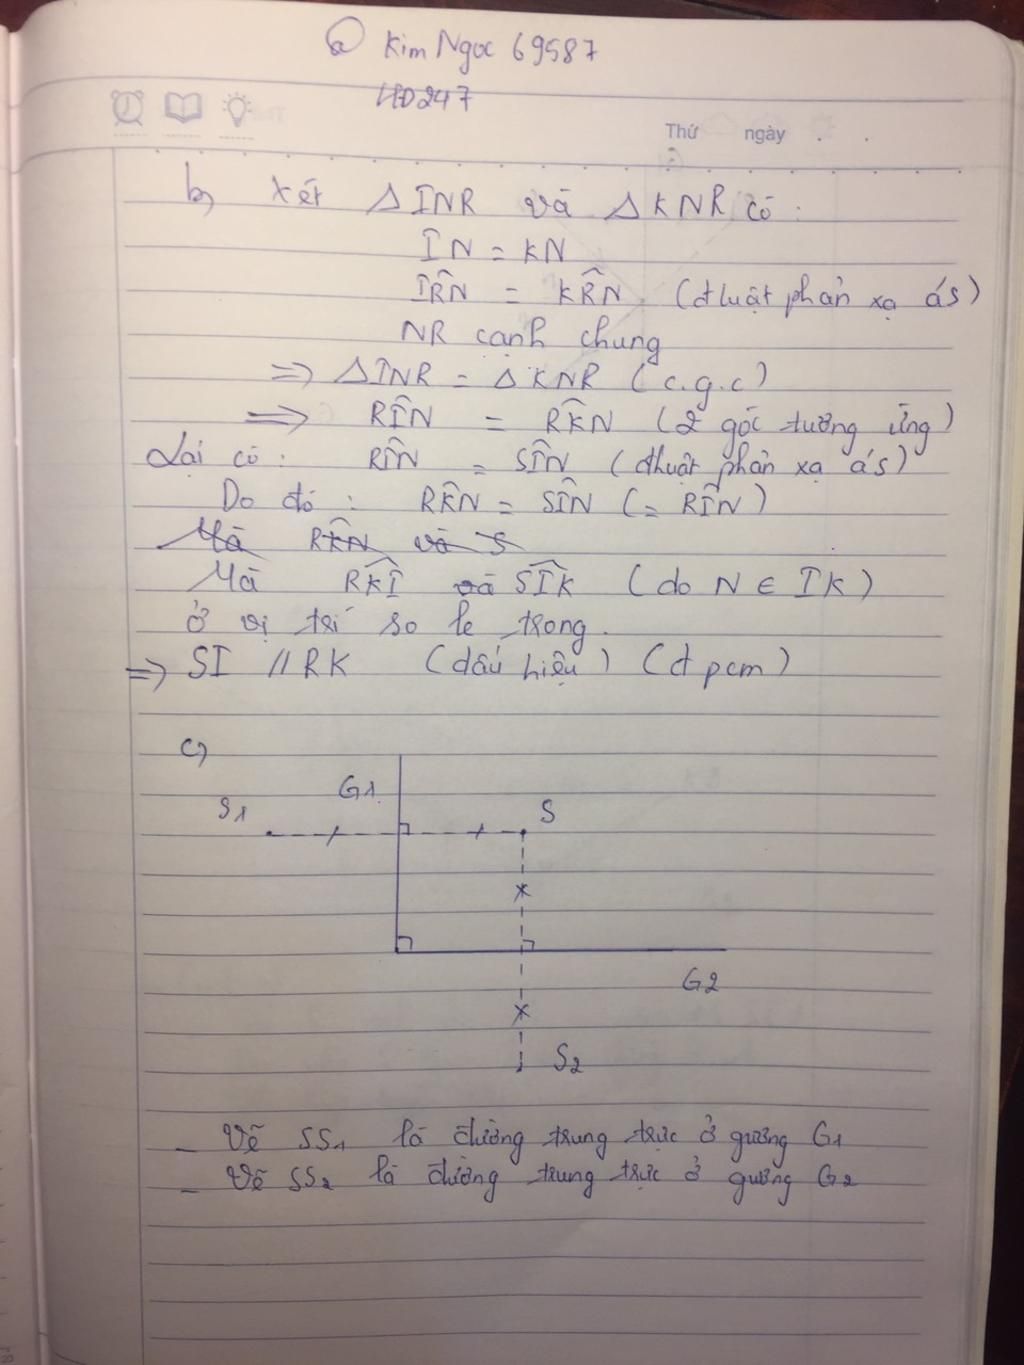 @ Kim Ngoc 69587
HD247
Thứ ngày . .
b, Xét Δ INR và Δ KNR có :
IN = KN
IR̂N = KR̂N (đluật phản xạ ás)
NR cạnh chung
=> ΔINR = ΔKNR (c.g.c)
=> RÎN = RK̂N (2 góc tương ứng)
Lại có : RÎN = SÎN (đluật phản xạ ás)
Do đó : RK̂N = SÎN (= RÎN)
Mà RK̂N và S
Mà RK̂I và SÎK (do N ∈ IK)
ở vị trí so le trong.
=> SI // RK (dấu hiệu) (đpcm)
c,
G1
S1
S
G2
S2
- Vẽ SS1 là đường trung trực ở gương G1
- Vẽ SS2 là đường trung trực ở gương G2